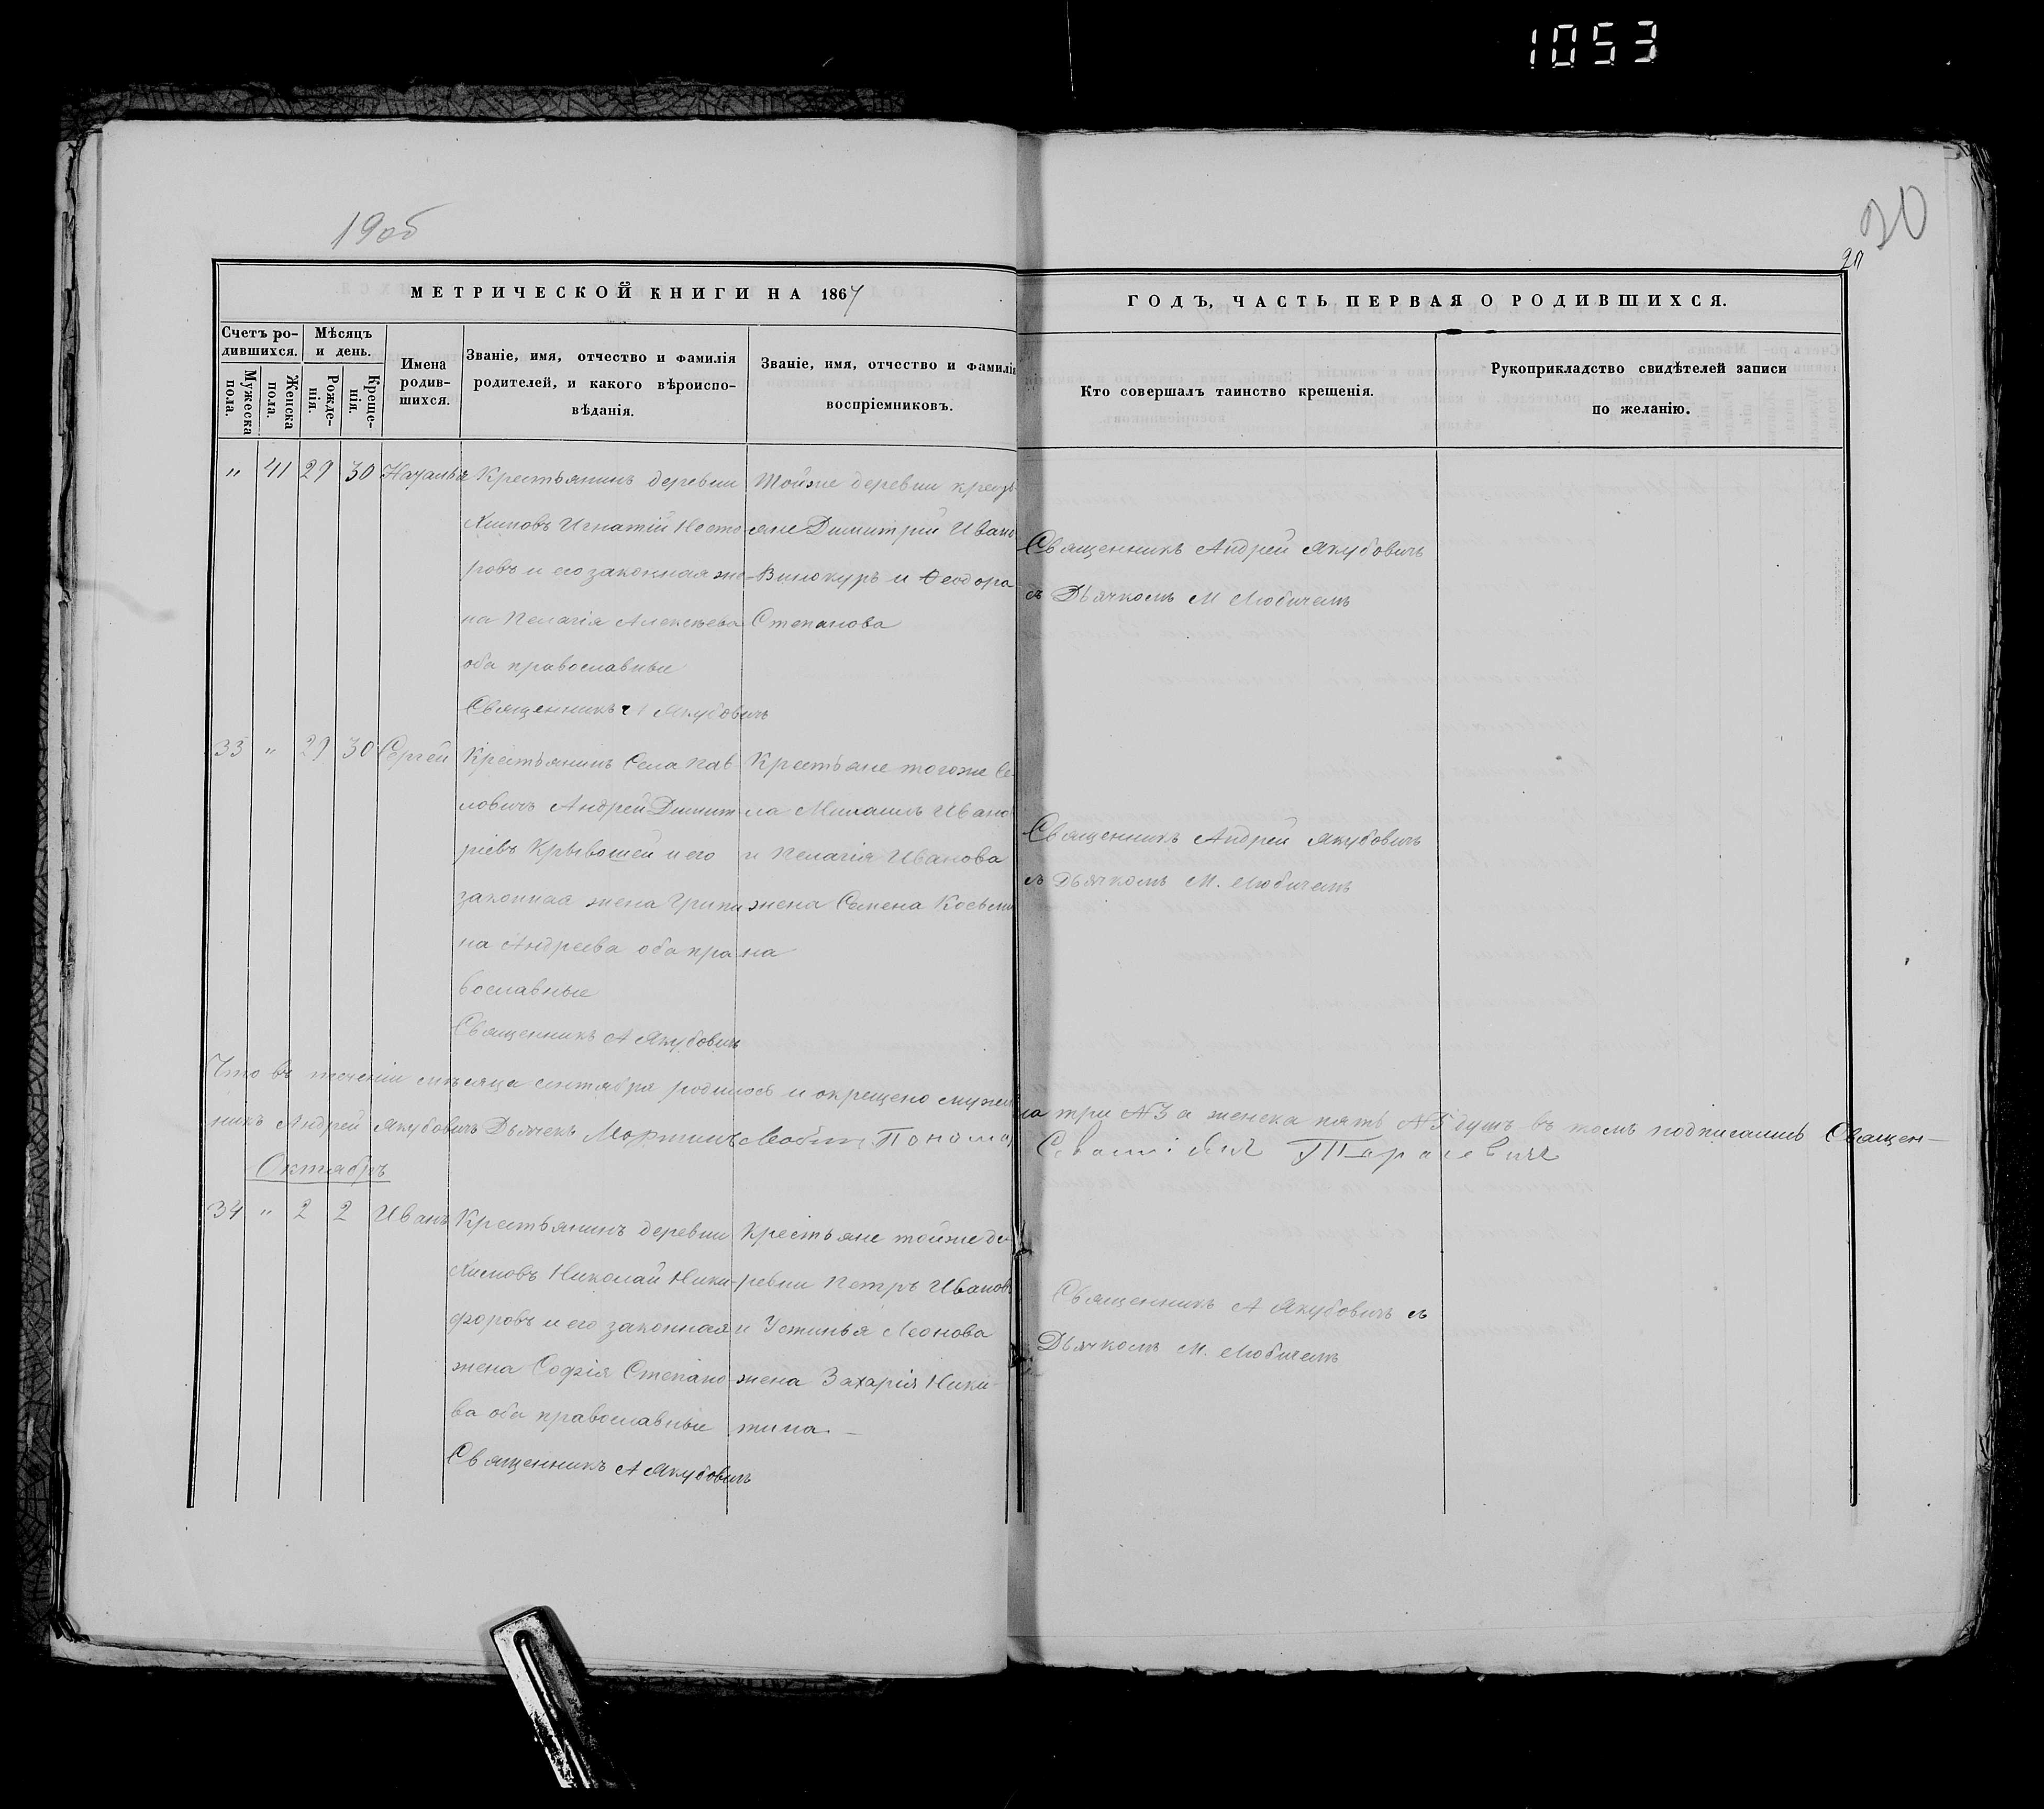 1053
19об
20
20
МЕТРИЧЕСКОЙ КНИГИ НА 1867
ГОДЪ, ЧАСТЬ ПЕРВАЯ О РОДИВШИХСЯ.
Счетъ ро-
дившихся.
Мужеска
пола.
Женска
пола.
Мѣсяцъ
и день.
Рожде-
нія.
Креще-
нія.
Имена
родив-
шихся.
Званіе, имя, отчество и фамилія
родителей, и какого вѣроиспо-
вѣданія.
Званіе, имя, отчество и фамилія
воспріемниковъ.
Кто совершалъ таинство крещенія.
Рукоприкладство свидѣтелей записи
по желанію.
" 41 29 30 Наталья
Крестьянинъ деревни
Химовъ Игнатій Несто-
ровъ и его законная же-
на Пелагія Алексѣева
оба православные
Священникъ А Якубовичъ
Тойже деревни крестья-
не Димитрій Ивано
Винокуръ и Ѳеодора
Степанова
Священникъ Андрей Якубовичъ
съ Дьячкомъ М Любичемъ
33 " 29 30 Сергей
Крестьянинъ Села Пав
ловичъ Андрей Димит-
ріевъ Крывошей и его
законная жена Агрипи
на Андреева оба пра
вославные
Священникъ А Якубовичъ
Крестьяне тогоже се-
ла Михаилъ Ивано
и Пелагія Иванова
жена Семена Косьми
на
Священникъ Андрей Якубовичъ
съ Дьячкомъ М. Любичемъ
Что въ теченіи мѣсяца сентября родилось и окрещено мужес
ка три №3 а женска пять №5 душъ въ томъ подписались Священ-
никъ Андрей Якубовичъ Дьячекъ Мартинъ Любичъ Понома
Тарасевичъ
Октябрь
34 " 2 2 Иванъ
Крестьянинъ деревни
Химовъ Николай Ники-
форовъ и его законная
жена Софія Степано
ва оба православные
Священникъ А Якубовичъ
Крестьяне тойже де-
ревни Петръ Ивановъ
и Устинья Леонова
жена Захарія Ники-
тина
Священникъ А Якубовичъ съ
Дьячкомъ М. Любичемъ